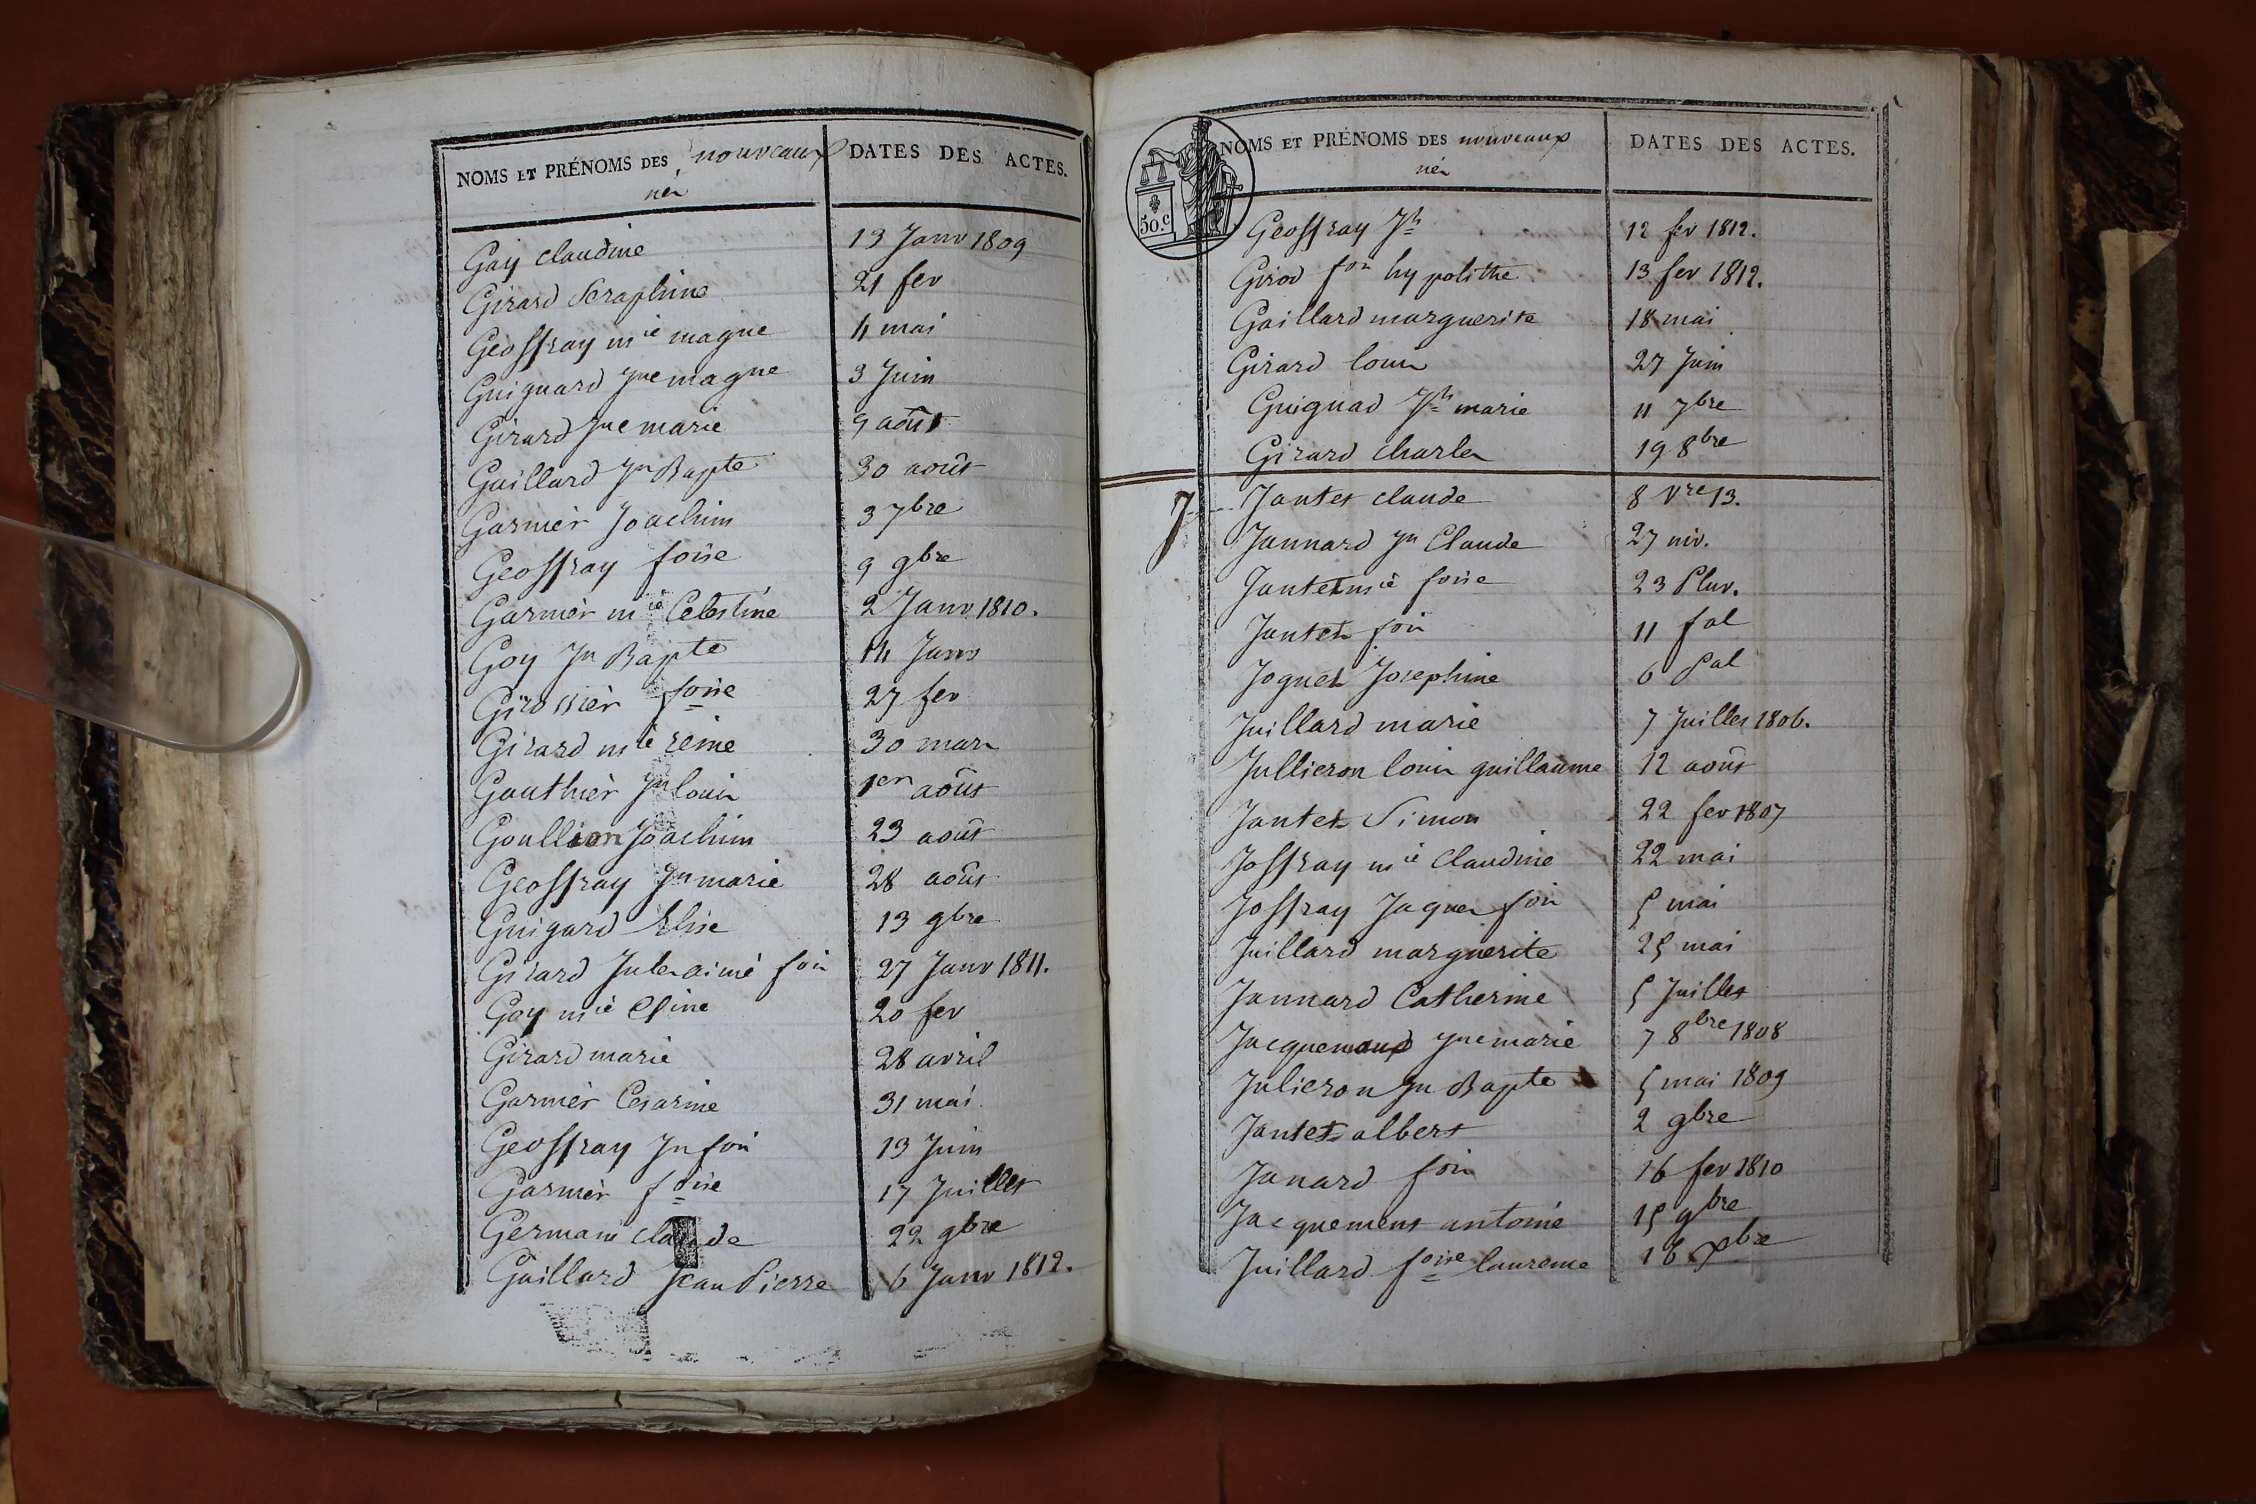 NOMS ET PRÉNOMS DES nouveaux DATES DES ACTES.
nés
Gay claudine 13 Janv 1809
Girard Seraphine 21 fev
Geoffray mie magne 4 mai
Guignard Jne magne 3 Juin
Girard Jne marie 9 août
Gaillard Jn Bapte 30 août
Garnier Joachim 3 7bre
Geoffray foise 9 9bre
Garnier mie Celestine 2 Janv 1810.
Goy Jn Bapte 14 Janv
Girossier foise 27 fev
Girard mie reine 30 mars
Gauthier Jn louis 1er août
Goullion Joachim 23 août
Geoffray Jn marie 28 août
Guigard Elise 13 9bre
Girard Jules aimé fois 27 Janv 1811.
Goy mie 20 fev
Girard marie 28 avril
Garnier Cesarine 31 mai
Geoffray Jn fois 13 Juin
Garnier foise 17 Juillet
Germain claude 22 9bre
Gaillard Jean Pierre 6 Janv 1812.
50.c
NOMS ET PRÉNOMS DES nouveaux DATES DES ACTES.
nés
Geoffray Jh 12 fev 1812.
Girod fois hypolithe 13 fev 1812.
Gaillard marguerite 18 mai
Girard louis 27 Juin
Guignad Jh marie 11 7bre
Girard charles 19 8bre
J
Jantet claude 8 vre 13.
Jannard Jn Claude 27 niv.
Jantet mie foise 23 Pluv.
Jantet fois 11 fal
Joguet Josephine 6 Pal
Juillard marie 7 Juillet 1806.
Jullieron louis guillaume 12 août
Jantet Simon 22 fev 1807
Joffray mie claudine 22 mai
Joffray Jaques fois 5 mai
Juillard marguerite 25 mai
Jannard Catherine 5 Juillet
Jacquemoud Jne marie 7 8bre 1808
Julieron Jn Bapte 5 mai 1809
Jantet albert 2 9bre
Janard fois 16 fev 1810
Jacquement antoine 15 9bre
Juillard foise laurence 18 xbre